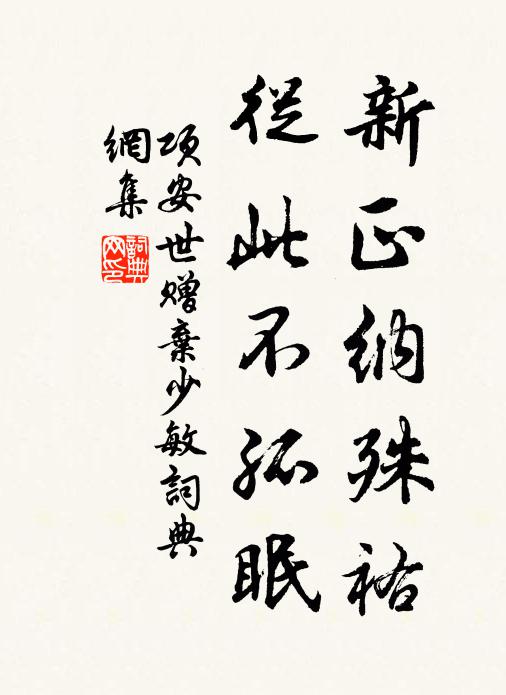 新正納殊祐
從此不孤眠
項安世贈棄少敏詞典
網集
詞典
网印